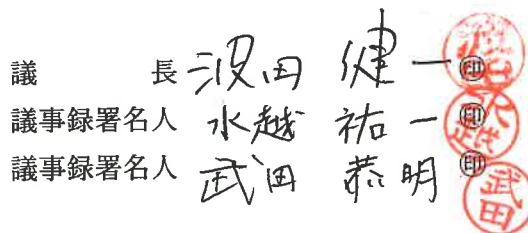 議長 波田 健一 ㊞
議事録署名人 水越 祐一 ㊞
議事録署名人 武田 恭明 ㊞
武田